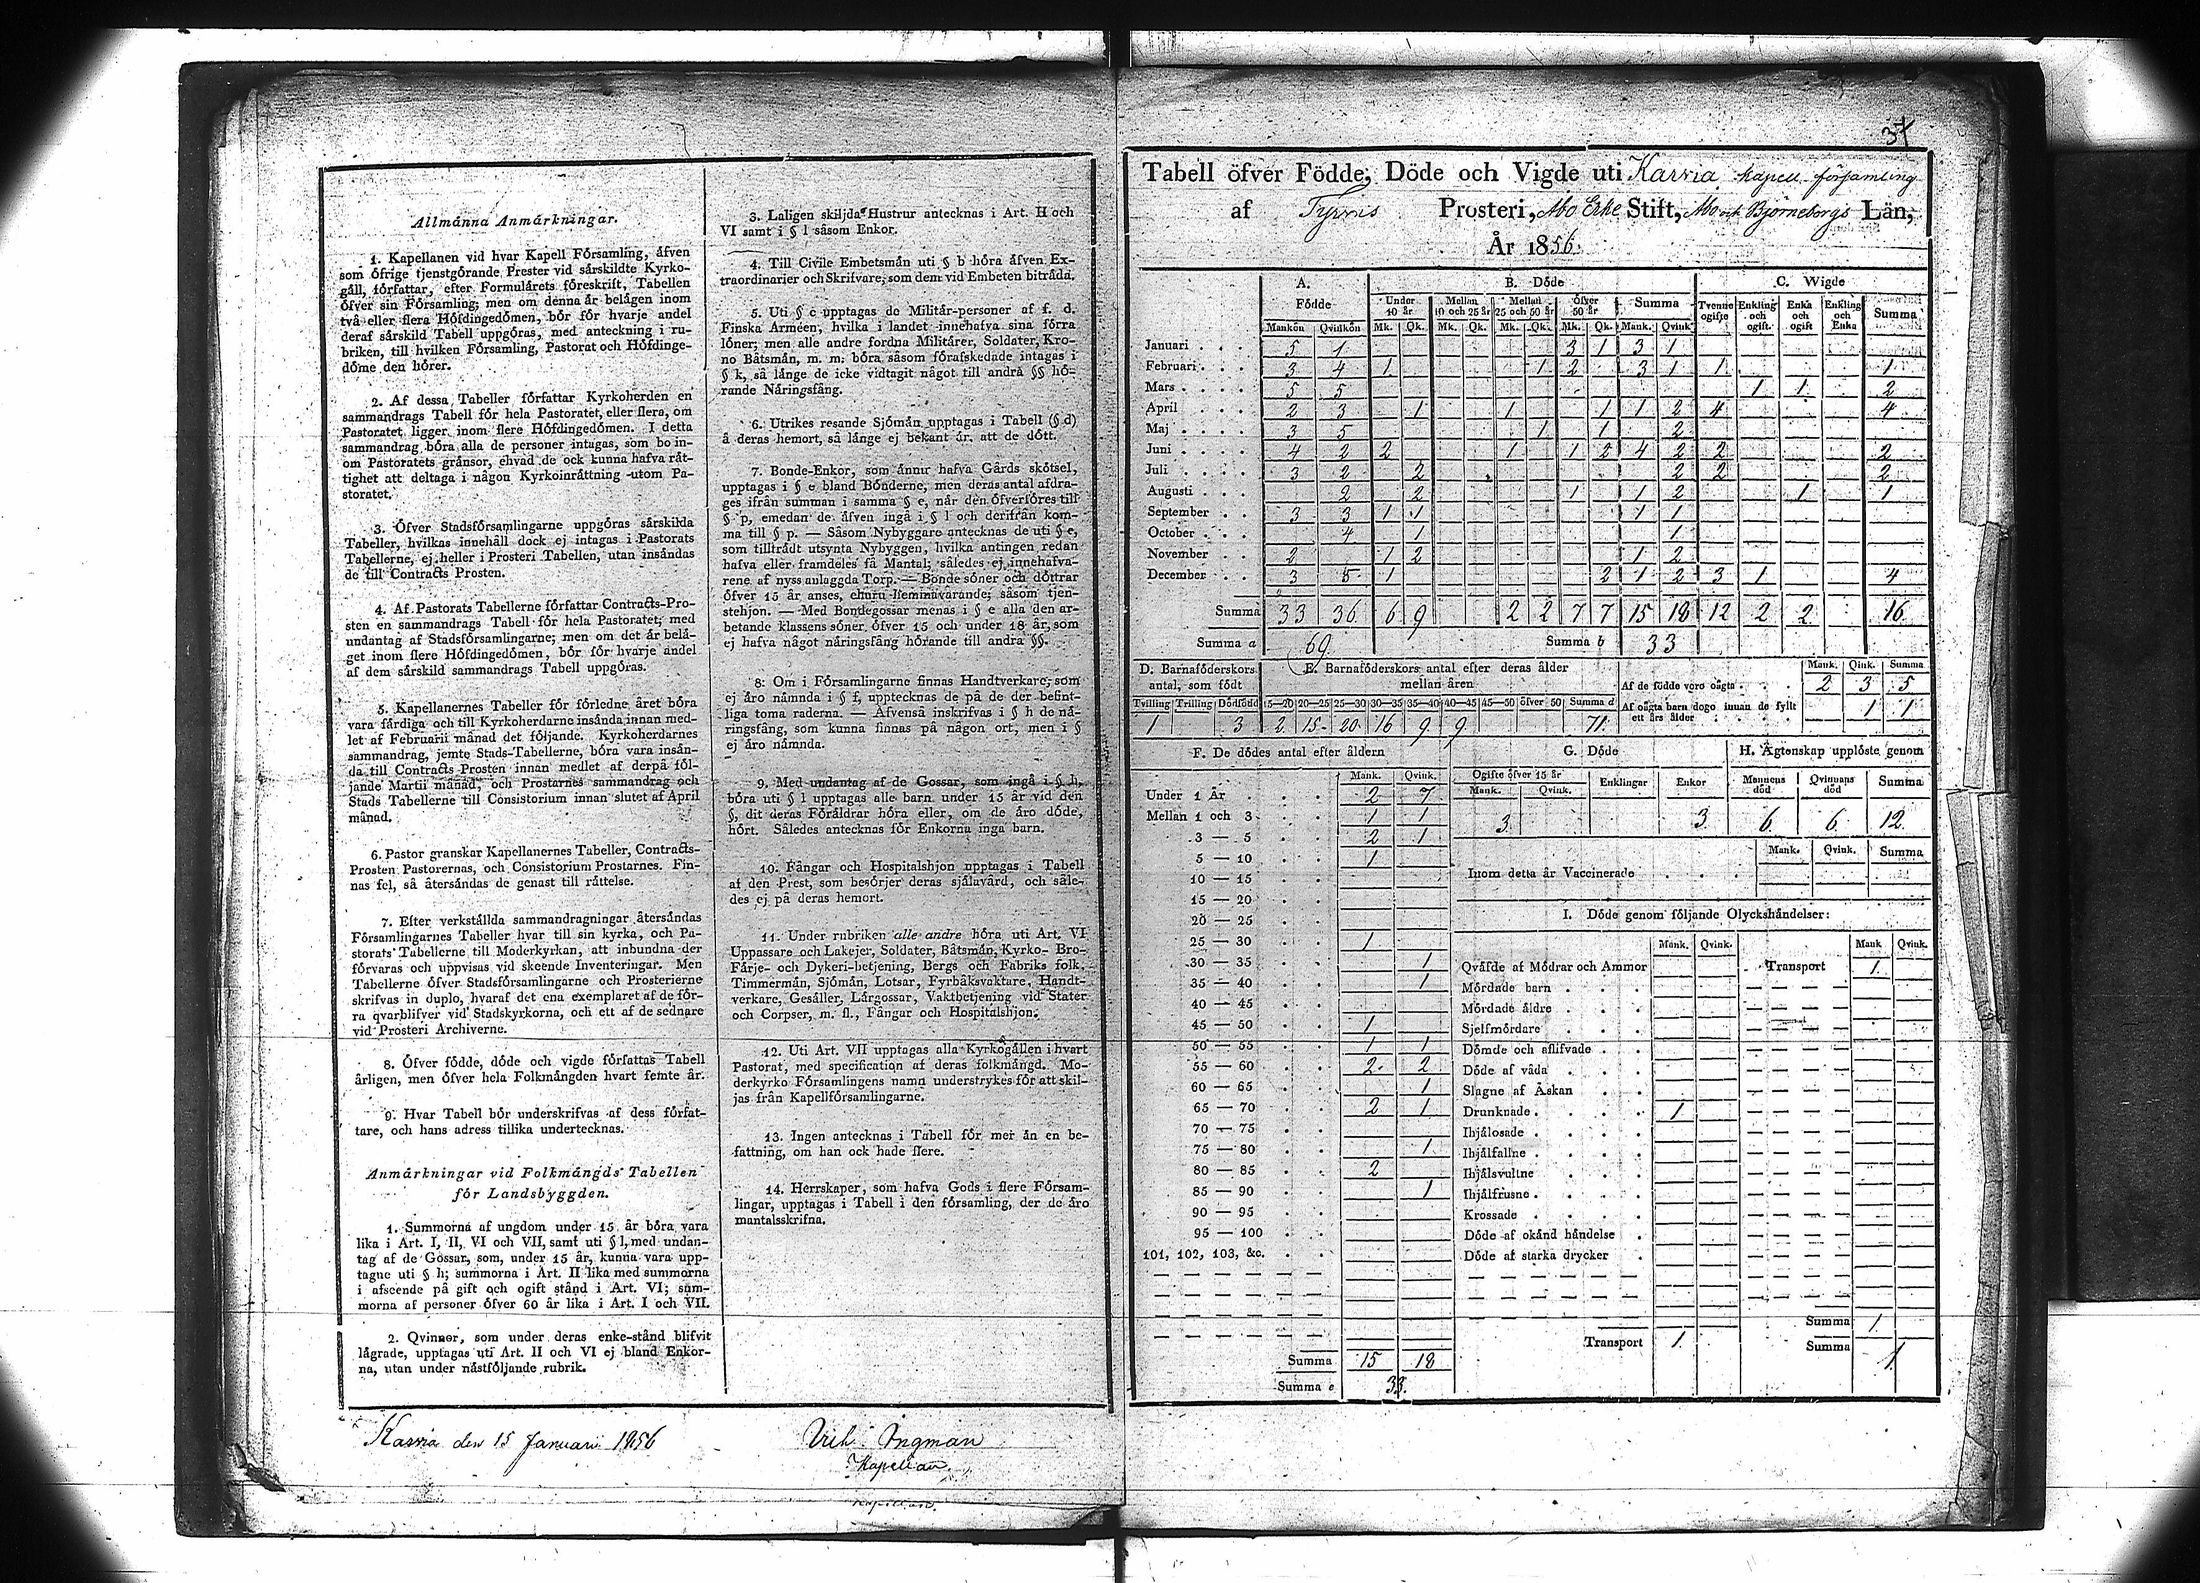 Allmånna Anmårkningar.
1. Kapellanen vid hvar Kapell Fórsamling, åfven
som ófrige tjenstgórande Prester vid sårskildte Kyrko-
gåll, fórfattar, efter Formulårets fóreskrift, Tabellen
ófver sin Fórsamling; men om denna år belågen inom
två eller flera Hófdingedómen, bór fór hvarje andel
deraf sårskild Tabell uppgóras, med anteckning i ru-
briken, till hvilken Fórsamling, Pastorat och Hófdinge-
dóme den hórer.
2. Af dessa Tabeller fórfattar Kyrkoherden en
sammandrags Tabell fór hela Pastoratet, eller flera, om
Pastoratet ligger inom flere Hófdingedómen. I detta
sammandrag bóra alla de personer intagas, som bo in-
om Pastoratets grånsor, ehvad de ock kunna hafva råt-
tighet att deltaga i någon Kyrkoinråttning utom Pa-
storatet.
3. Ófver Stadsfórsamlingarne uppgóras sårskilda
Tabeller, hvilkas innehåll dock ej intagas i Pastorats
Tabellerne, ej heller i Prosteri Tabellen, utan insåndas
de till Contracts Prosten.
4. Af Pastorats Tabellerne fórfattar Contracts-Pro-
sten en sammandrags Tabell fór hela Pastoratet, med
undantag af Stadsfórsamlingarne; men om det år belå-
get inom flere Hófdingedómen, bór fór hvarje andel
af dem sårskild sammandrags Tabell uppgóras.
5. Kapellanernes Tabeller fór fórledne året bóra
vara fårdiga och till Kyrkoherdarne insånda innan med-
let af Februarii månad det fóljande. Kyrkoherdarnes
sammandrag, jemte Stads-Tabellerne, bóra vara insån-
da till Contracts Prosten innan medlet af derpå fól-
jande Martii månad, och Prostarnes sammandrag och
Stads Tabellerne till Consistorium innan slutet af April
månad.
6. Pastor granskar Kapellanernes Tabeller, Contracts-
Prosten Pastorernas, och Consistorium Prostarnes. Fin-
nas fel, så återsåndas de genast till råttelse.
7. Efter verkstållda sammandragningar återsåndas
Fórsamlingarnes Tabeller hvar till sin kyrka, och Pa-
storats Tabellerne till Moderkyrkan, att inbundna der
fórvaras och uppvisas vid skeende Inventeringar. Men
Tabellerne ófver Stadsfórsamlingarne och Prosterierne
skrifvas in duplo, hvaraf det ena exemplaret af de fór-
ra qvarblifver vid Stadskyrkorna, och ett af de sednare
vid Prosteri Archiverne.
8. Ófver fódde, dóde och vigde fórfattas Tabell
årligen, men ófver hela Folkmångden hvart femte år.
9. Hvar Tabell bór underskrifvas af dess fórfat-
tare, och hans adress tillika undertecknas.
Anmårkningar vid Folkmångds Tabellen
fór Landsbyggden.
1. Summorna af ungdom under 15 år bóra vara
lika i Art. I, II, VI och VII, samt uti § l, med undan-
tag af de Gossar, som, under 15 år, kunna vara upp-
tagne uti § h; summorna i Art. II lika med summorna
i afseende på gift och ogift stånd i Art. VI; sum-
morna af personer ófver 60 år lika i Art. I och VII.
2. Qvinnor, som under deras enke-stånd blifvit
lågrade, upptagas uti Art. II och VI ej bland Enkor-
na, utan under nåstfóljande rubrik.
3. Laligen skiljda Hustrur antecknas i Art. II och
VI samt i § l såsom Enkor.
4. Till Civile Embetsmån uti § b hóra åfven Ex-
traordinarier och Skrifvare, som dem vid Embeten bitråda.
5. Uti § c upptagas de Militår-personer af f. d.
Finska Arméen, hvilka i landet innehafva sina fórra
lóner; men alle andre fordna Militårer, Soldater, Kro-
no Båtsmån, m. m. bóra såsom fórafskedade intagas i
§ k, så långe de icke vidtagit något till andra §§ hó-
rande Nåringsfång.
6. Utrikes resande Sjómån upptagas i Tabell (§ d)
å deras hemort, så långe ej bekant år, att de dótt.
7. Bonde-Enkor, som ånnu hafva Gårds skótsel,
upptagas i § e bland Bónderne, men deras antal afdra-
ges ifrån summan i samma § e, når den ófverfóres till
§ p, emedan de åfven ingå i § l och derifrån kom-
ma till § p. — Såsom Nybyggare antecknas de uti § e,
som tilltrådt utsynta Nybyggen, hvilka antingen redan
hafva eller framdeles få Mantal; således ej innehafva-
rene af nyss anlaggda Torp. — Bonde sóner och dóttrar
ófver 15 år anses, ehuru hemmavarande, såsom tjen-
stehjon. — Med Bondegossar menas i § e alla den ar-
betande klassens sóner ófver 15 och under 18 år, som
ej hafva något nåringsfång hórande till andra §§.
8. Om i Fórsamlingarne finnas Handtverkare, som
ej åro nåmnda i § f, upptecknas de på de der befint-
liga toma raderna. — Åfvenså inskrifvas i § h de nå-
ringsfång, som kunna finnas på någon ort, men i §
ej åro nåmnda.
9. Med undantag af de Gossar, som ingå i § h,
bóra uti § l upptagas alle barn under 15 år vid den
§, dit deras Fóråldrar hóra eller, om de åro dóde,
hórt. Således antecknas fór Enkorna inga barn.
10. Fångar och Hospitalshjon upptagas i Tabell
af den Prest, som besórjer deras sjålavård, och såle-
des ej på deras hemort.
11. Under rubriken alle andre hóra uti Art. VI
Uppassare och Lakejer, Soldater, Båtsmån, Kyrko- Bro-
Fårje- och Dykeri-betjening, Bergs och Fabriks folk,
Timmermån, Sjómån, Lotsar, Fyrbåksvaktare, Handt-
verkare, Gesåller, Lårgossar, Vaktbetjening vid Stater
och Corpser, m. fl., Fångar och Hospitalshjon.
12. Uti Art. VII upptagas alla Kyrkogållen i hvart
Pastorat, med specification af deras folkmångd. Mo-
derkyrko Fórsamlingens namn understrykes fór att skil-
jas från Kapellfórsamlingarne.
13. Ingen antecknas i Tabell fór mer ån en be-
fattning, om han ock hade flere.
14. Herrskaper, som hafva Gods i flere Fórsam-
lingar, upptagas i Tabell i den fórsamling, der de åro
mantalsskrifna.
Karvia den 15 Januari 1856
Erik Ingman
Kapellan.
Kapellan.
37
Tabell öfver Födde, Döde och Vigde uti Karvia kapell församling
af Tyrvis Prosteri, Åbo Erke Stift, Åbo och Björneborgs Län,
År 1856.
A. B. Dóde C. Wigde
Fódde Under 10 år Mellan 10 och 25 år Mellan 25 och 50 år Ófver 50 år Summa Tvenne ogifte Enkling och ogift Enka och ogift Enkling och Enka Summa
Mankón Qvinkón Mk. Qk. Mk. Qk. Mk. Qk. Mk. Qk. Mank. Qvink.
Januari 5 1 3 1 3 1
Februari 3 4 1 1 2 3 1 1 1
Mars 5 5 1 1 2
April 2 3 1 1 1 1 2 4 4
Maj 3 5 1 1 2
Juni 4 2 2 1 1 2 4 2 2 2
Juli 3 2 2 2 2 2
Augusti 2 2 1 1 2 1 1
September 3 3 1 1 1 1
October 4 1 1
November 2 1 2 1 2
December 3 5 1 2 1 2 3 1 4
Summa 33 36 6 9 2 2 7 7 15 18 12 2 2 16
Summa a 69 Summa b 33
D. Barnafóderskors antal, som fódt
Tvilling Trilling Dódfódd
1 3
E. Barnafóderskors antal efter deras ålder
mellan åren
15—20 20—25 25—30 30—35 35—40 40—45 45—50 ófver 50 Summa d
2 15 20 16 9 9 71
Mank. Qink. Summa
Af de fódde voro oågta 2 3 5
Af oågta barn dogo innan de fyllt
ett års ålder 1 1
F. De dódes antal efter åldern
Mank. Qvink.
Under 1 År 2 7
Mellan 1 och 3 1 1
3 — 5 2 1
5 — 10 1
10 — 15
15 — 20
20 — 25
25 — 30 1
30 — 35 1
35 — 40 1
40 — 45
45 — 50 1
50 — 55 1 1
55 — 60 2 2
60 — 65 1
65 — 70 2 1
70 — 75
75 — 80 1
80 — 85 2
85 — 90 1
90 — 95
95 — 100
101, 102, 103, &c.
Summa 15 18
Summa e 33
G. Dóde
Ogifte ófver 15 år Enklingar Enkor
Mank. Qvink.
3 3
H. Ågtenskap upplóste genom
Mannens dód Qvinnans dód Summa
6 6 12
Mank. Qvink. Summa
Inom detta år Vaccinerade
I. Dóde genom fóljande Olyckshåndelser:
Mank. Qvink. Mank. Qvink.
Qvåfde af Módrar och Ammor Transport 1
Mórdade barn
Mórdade åldre
Sjelfmórdare
Dómde och aflifvade
Dóde af våda
Slagne af Åskan
Drunknade 1
Ihjålosade
Ihjålfallne
Ihjålsvultne
Ihjålfrusne
Krossade
Dóde af okånd håndelse
Dóde af starka drycker
Summa 1
Transport 1 Summa 1